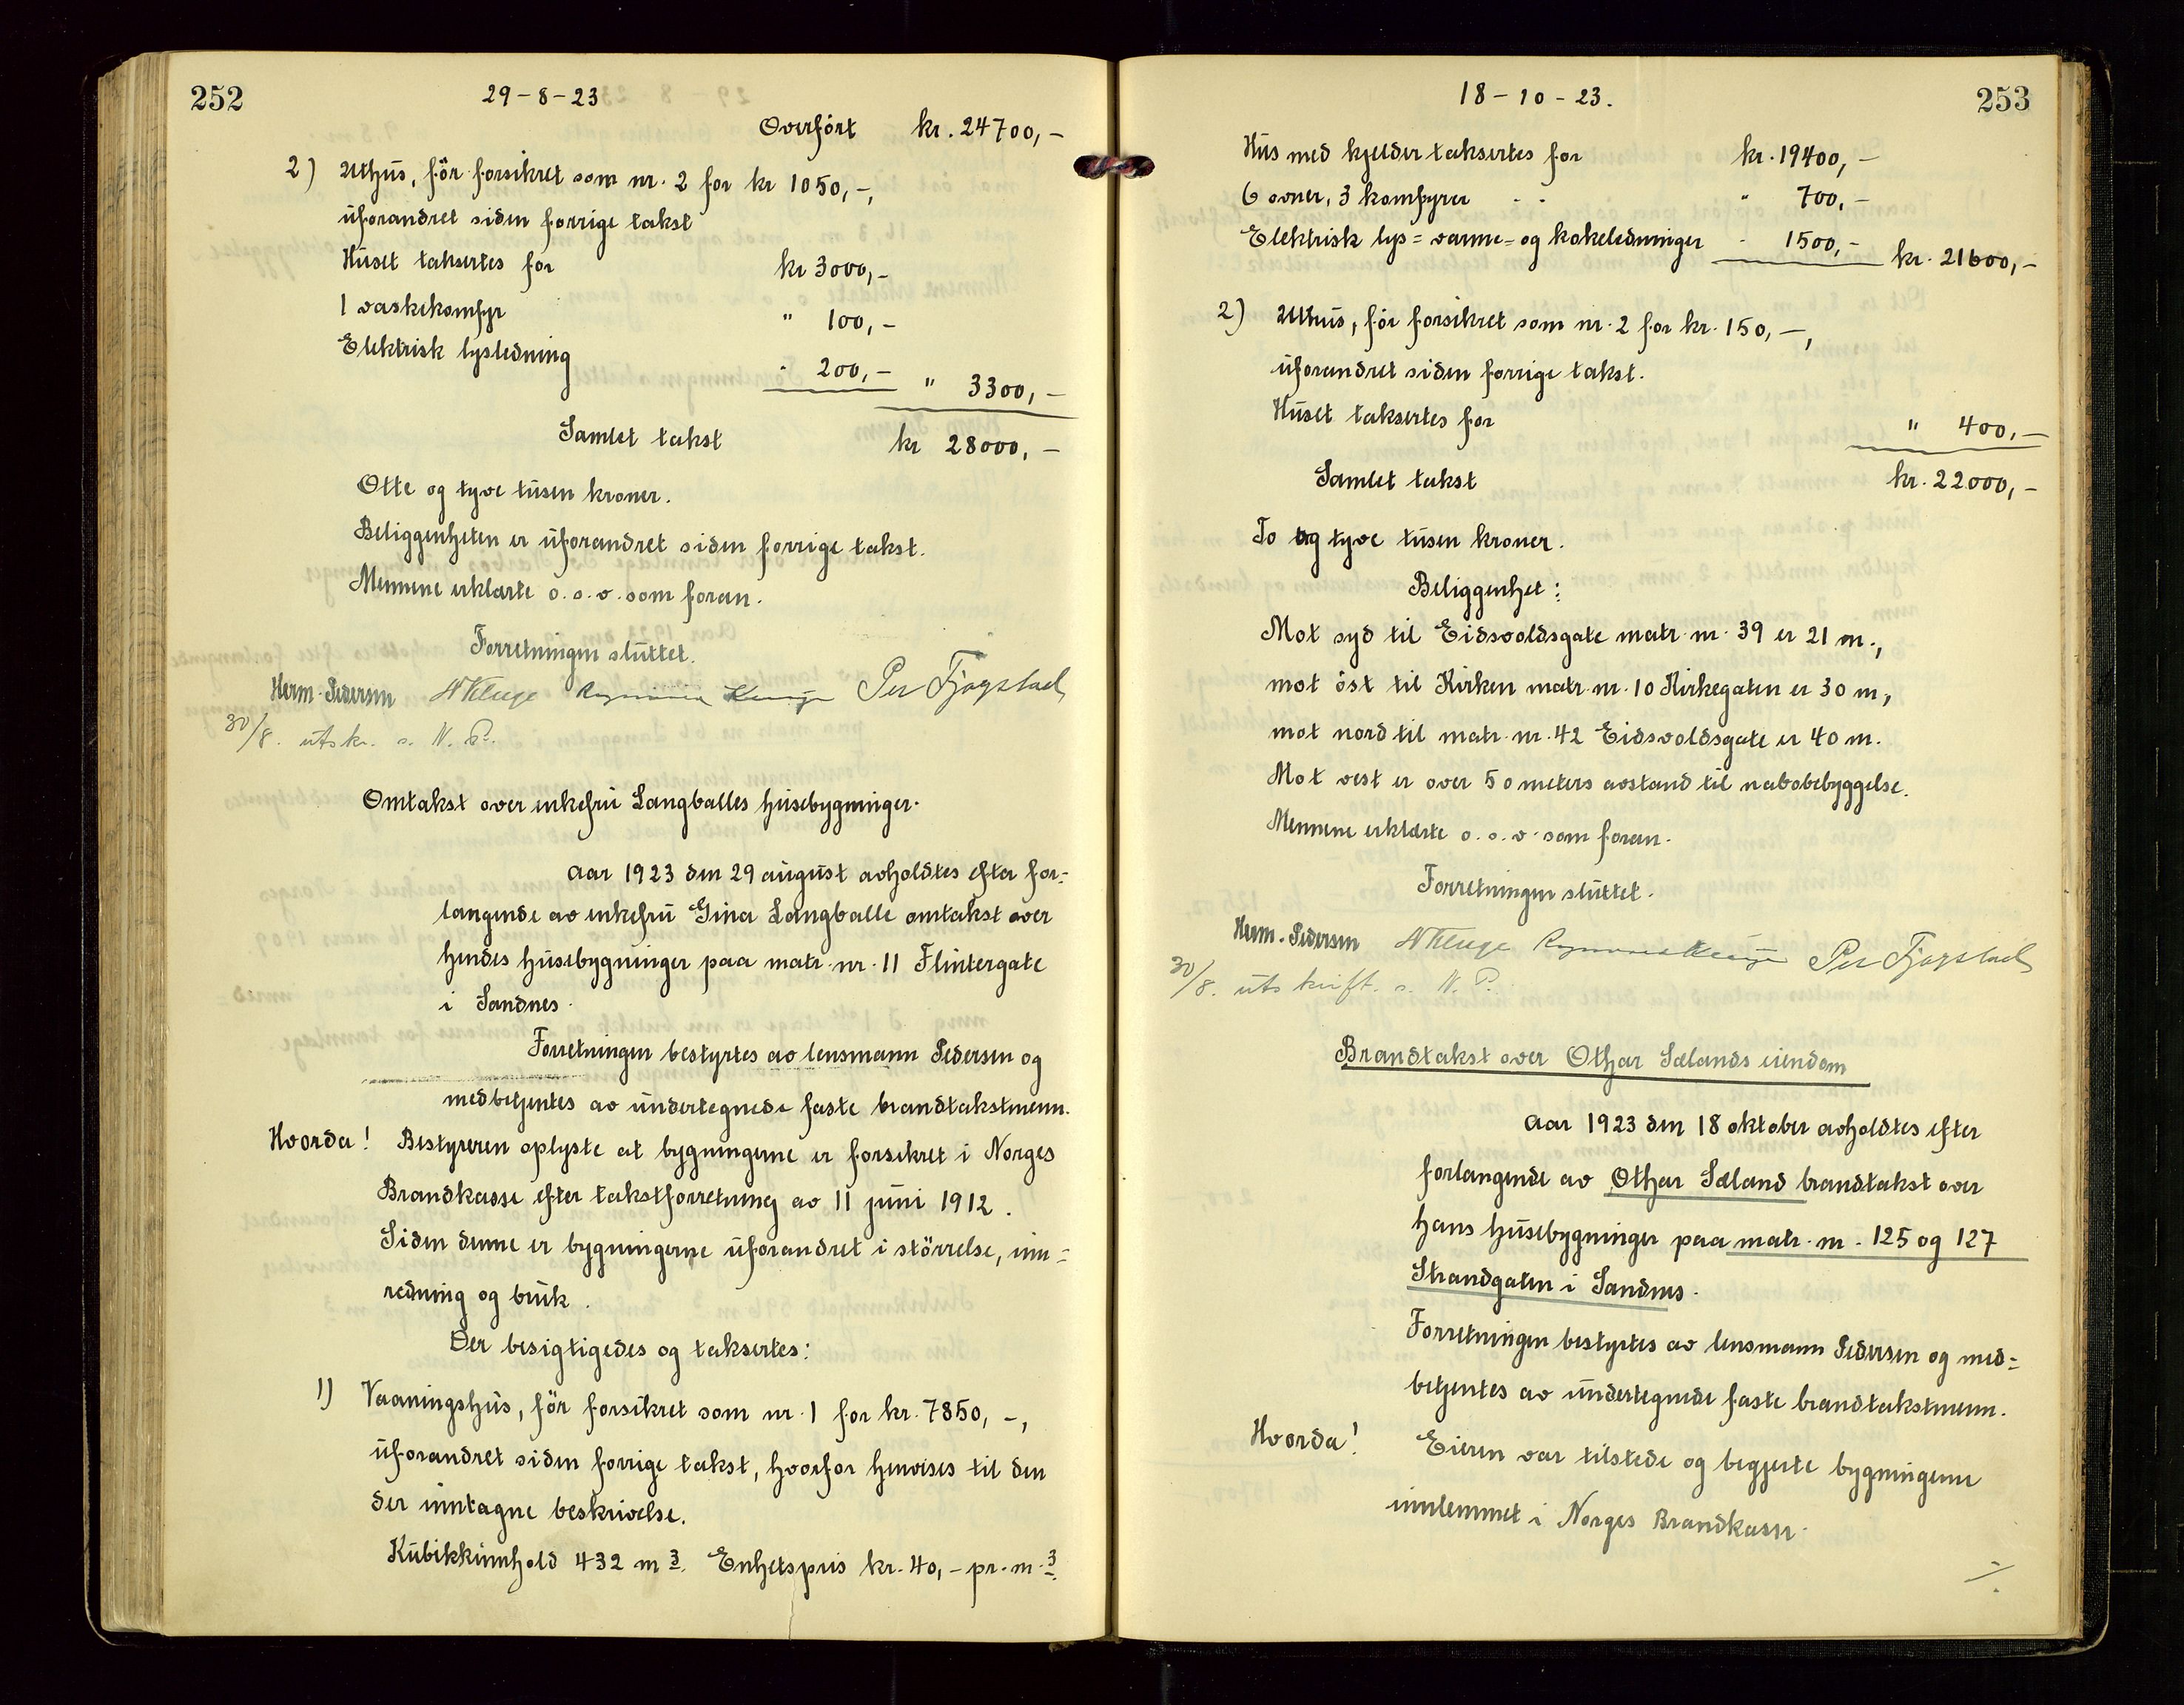 252
29-8-23
Overfört kr. 24700,-
2) Uthus, för forsikret som nr. 2 for kr 1050,-,
uforandret siden forrige takst
Huset taksertes for kr 3000,-
1 vaskekomfyr " 100,-
Elektrisk lysledning " 200,- " 3300,-
Samlet takst kr 28000,-
Otte og tyve tusen kroner.
Beliggenheten er uforandret siden forrige takst.
Mennene erklærte o.s.v. som foran.
Forretningen sluttet.
Herm. Pedersen Per Fjogstad
30/8. utskr. s. N. P.
Omtakst over enkefru Langballes husebygninger.
Aar 1923 den 29 august avholdtes efter for=
langende av enkefru Gina Langballe omtakst over
hendes husebygninger paa matr. nr. 11 Flintergate
i Sandnes.
Forretningen bestyrtes av lensmann Pedersen og
medbetjentes av undertegnede faste brandtakstmenn.
Hvorda! Bestyreren oplyste at bygningerne er forsikret i Norges
Brandkasse efter takstforretning av 11 juni 1912.
Siden denne er bygningerne uforandret i störrelse, inn=
redning og bruk.
Der besigtigedes og taksertes:
1) Vaaningshus, för forsikret som nr. 1 for kr. 7850,-,
uforandret siden forrige takst, hvorfor henvises til den
der inntagne beskrivelse.
Kubikkinnhold 432 m3. Enhetspris kr. 40,- pr. m.3.
18-10-23.
253
Hus med kjelder taksertes for kr. 19400,-
6 ovner, 3 komfyrer " " 700,-
Elektrisk lys= varme= og kokeledninger " 1500,- kr. 21600,-
2) Uthus, för forsikret som nr. 2 for kr. 150,-,
uforandret siden forrige takst.
Huset taksertes for " 400,-
Samlet takst kr. 22000,-
To og tyve tusen kroner.
Beliggenhet:
Mot syd til Eidsvoldsgate matr. nr. 39 er 21 m.,
mot öst til Kirken matr. nr. 10 Kirkegaten er 30 m.,
mot nord til matr. nr. 42 Eidsvoldsgate er 40 m.
Mot vest er over 50 meters avstand til nabobebyggelse.
Mennene erklærte o.s.v. som foran.
Forretningen sluttet.
Herm. Pedersen Per Fjogstad
30/8. utskrift. s. N. P.
Brandtakst over Othar Sælands eiendom
Aar 1923 den 18 oktober avholdtes efter
forlangende av Othar Sæland brandtakst over
hans husebygninger paa matr. nr. 125 og 127
Strandgaten i Sandnes.
Forretningen bestyrtes av lensmann Pedersen og med=
betjentes av undertegnede faste brandtakstmenn.
Hvorda! Eieren var tilstede og begjerte bygningerne
innlemmet i Norges Brandkasse.